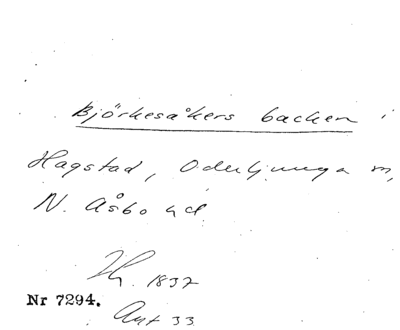 Björkesåkers backen i
Hagstad, Oderljunga m,
N. Åsbo hd
1837
Nr 7294.
Ant 33